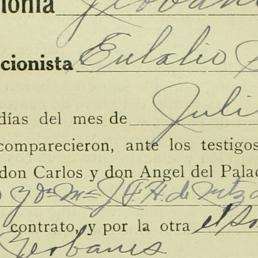 lonia Jeobanes
cionista Eulalio
días del mes de Juli
comparecieron, ante los testigos
don Carlos y don Angel del Palac
y Dª Mª J. F. H. de
contrato, y por la otra el So
Jeobanes